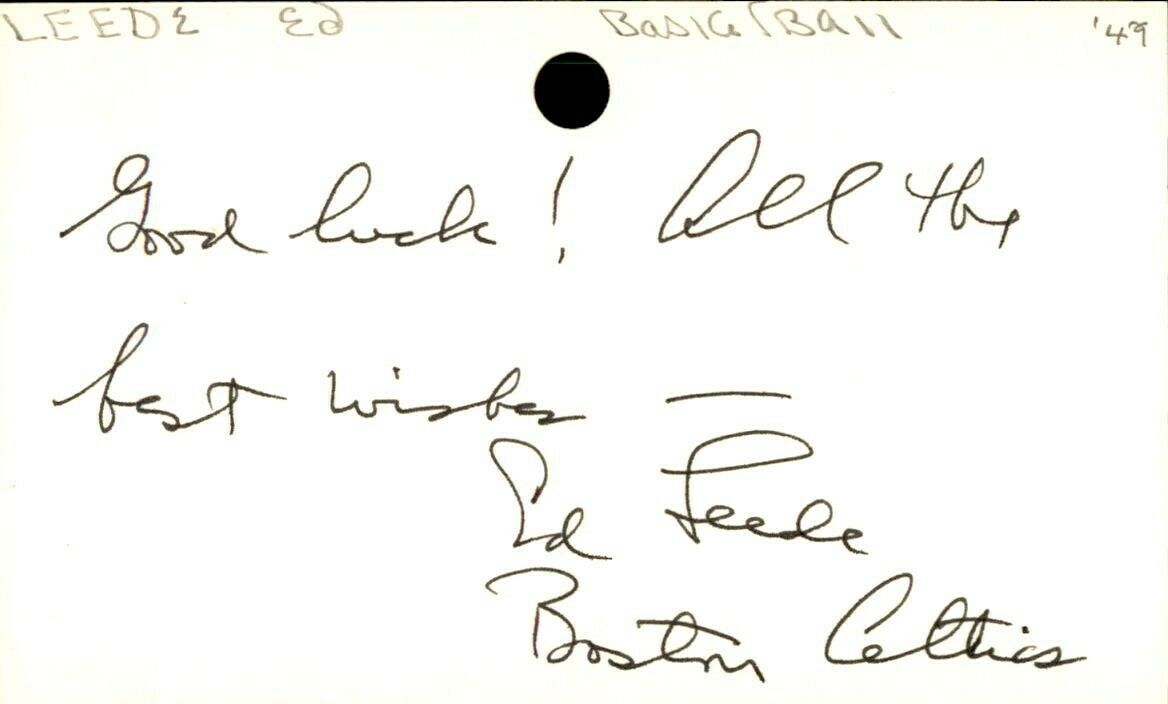 LEEDE Ed BasketBall '49
Good luck! All the
best wishes —
Ed Leede
Boston Celtics